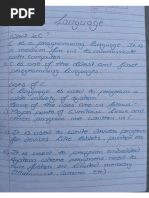 Language
What is C?
C is a programming language. It is
medium for us to communicate
with computer.
C is one of the oldest and finest
programming language.
Uses of C
C language is used to program
wide variety of system
of the uses are as follows
Major parts of Windows, Linux and
other programs are written in C
C is used to write driver program
for devices like Tablets, printers
C is used to program embedded
System where programs need to
run faster in limited memory
(Microwave, Cameras etc.)